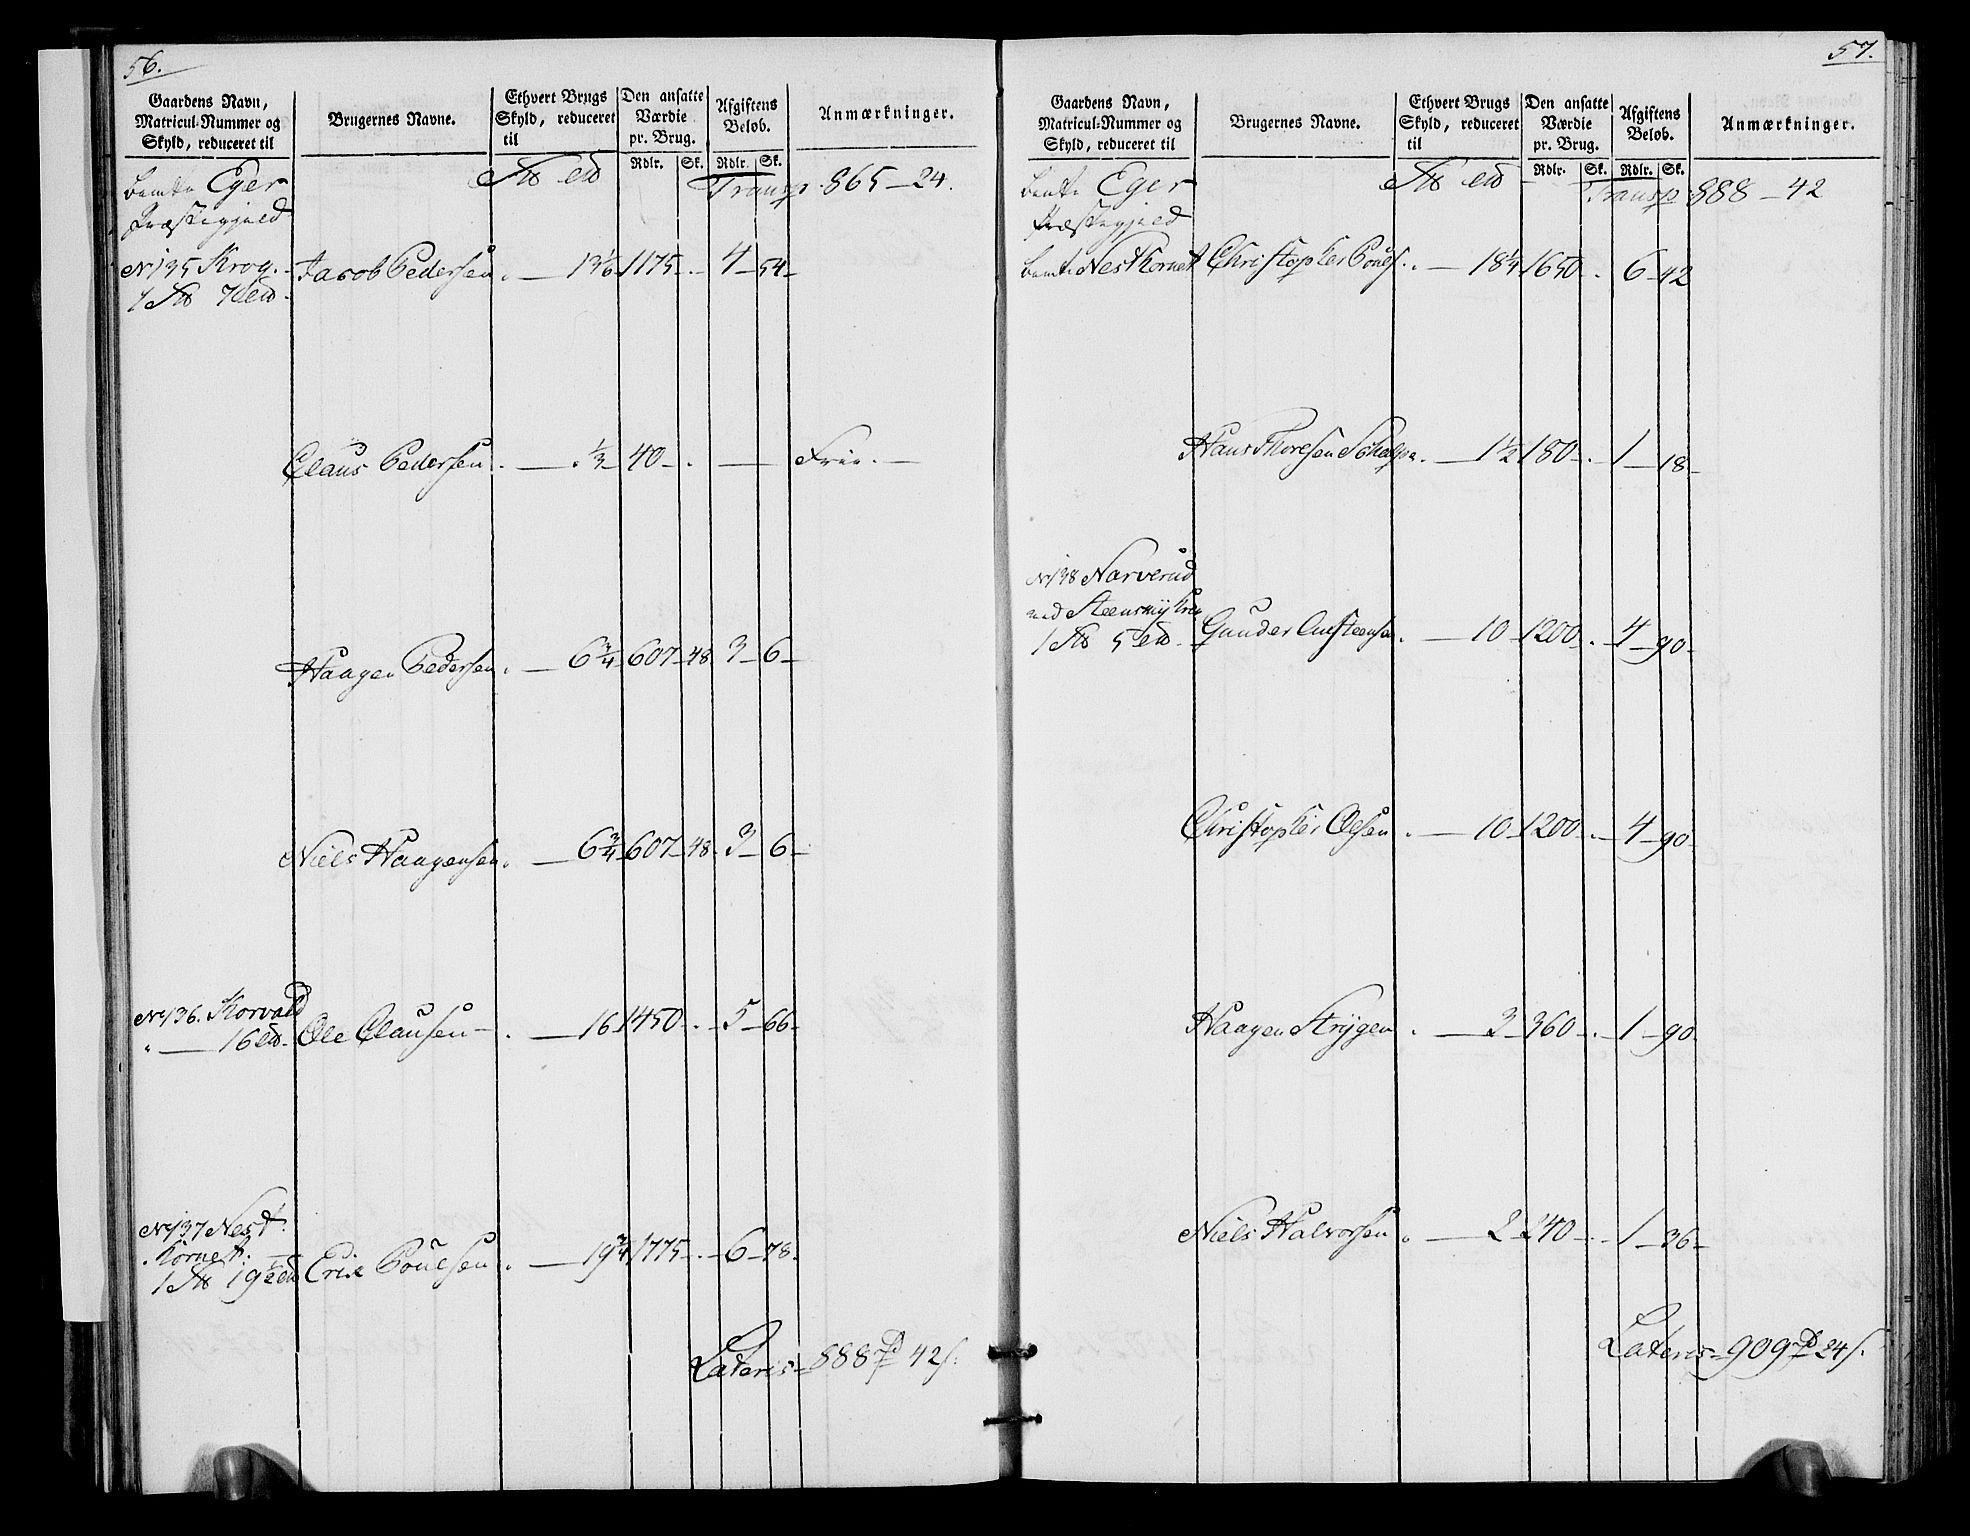 56.
Gaardens Navn, Matricul-Nummer og Skyld, reduceret til
Brugernes Navne.
Ethvert Brugs Skyld, reduceret til
Den ansatte Værdie pr. Brug.
Afgiftens Beløb.
Anmærkninger.
Rdlr. Sk. Rdlr. Sk.
bemte Eger
Præstegjeld
Transp. 865 - 24.
No 135 Krog. Jacob Pedersen . — 13 1/6 1175 - . - 4 - 54 -
Claus Pedersen . — . 1/3 - 40 - . — Frie. —
Haagen Pedersen . — 6 3/4 607 - 48 3 - 6 -
Niels Haagensen . — 6 3/4 607 - 48 - 3 - 6 -
No 136. Korvald
" — 16 Ole Clausen - . — 16 1450 - . - 5 - 66 -
No 137 Nest:
Kornet:
19 1/2 Erik Pouelsen . — 19 3/4 1775 - . - 6 - 78 -
Lateris - 888 42 s.
57.
Gaardens Navn, Matricul-Nummer og Skyld, reduceret til
Brugernes Navne.
Ethvert Brugs Skyld, reduceret til
Den ansatte Værdie pr. Brug.
Afgiftens Beløb.
Anmærkninger.
Rdlr. Sk. Rdlr. Sk.
bemte Eger
Præstegjeld
Transp. 888 - 42
bemte Nestkornet Christopher Pouels. . — 18 1/4 1650 - . 6 - 42
Hans Thoresen — 1 1/2 180 - . - 1 - 18 -
No 138 Narverud
med
Gunder Ansteensen . — 10 - 1200 - . - 4 - 90 -
Christopher Olsen . — 10 - 1200 - . - 4 - 90 -
Haagen Strygen . — 3 - 360 - . - 1 - 90 -
Niels Halvorsen . — 2 - 240 - . - 1 - 36 -
Lateris - 909 24 s.